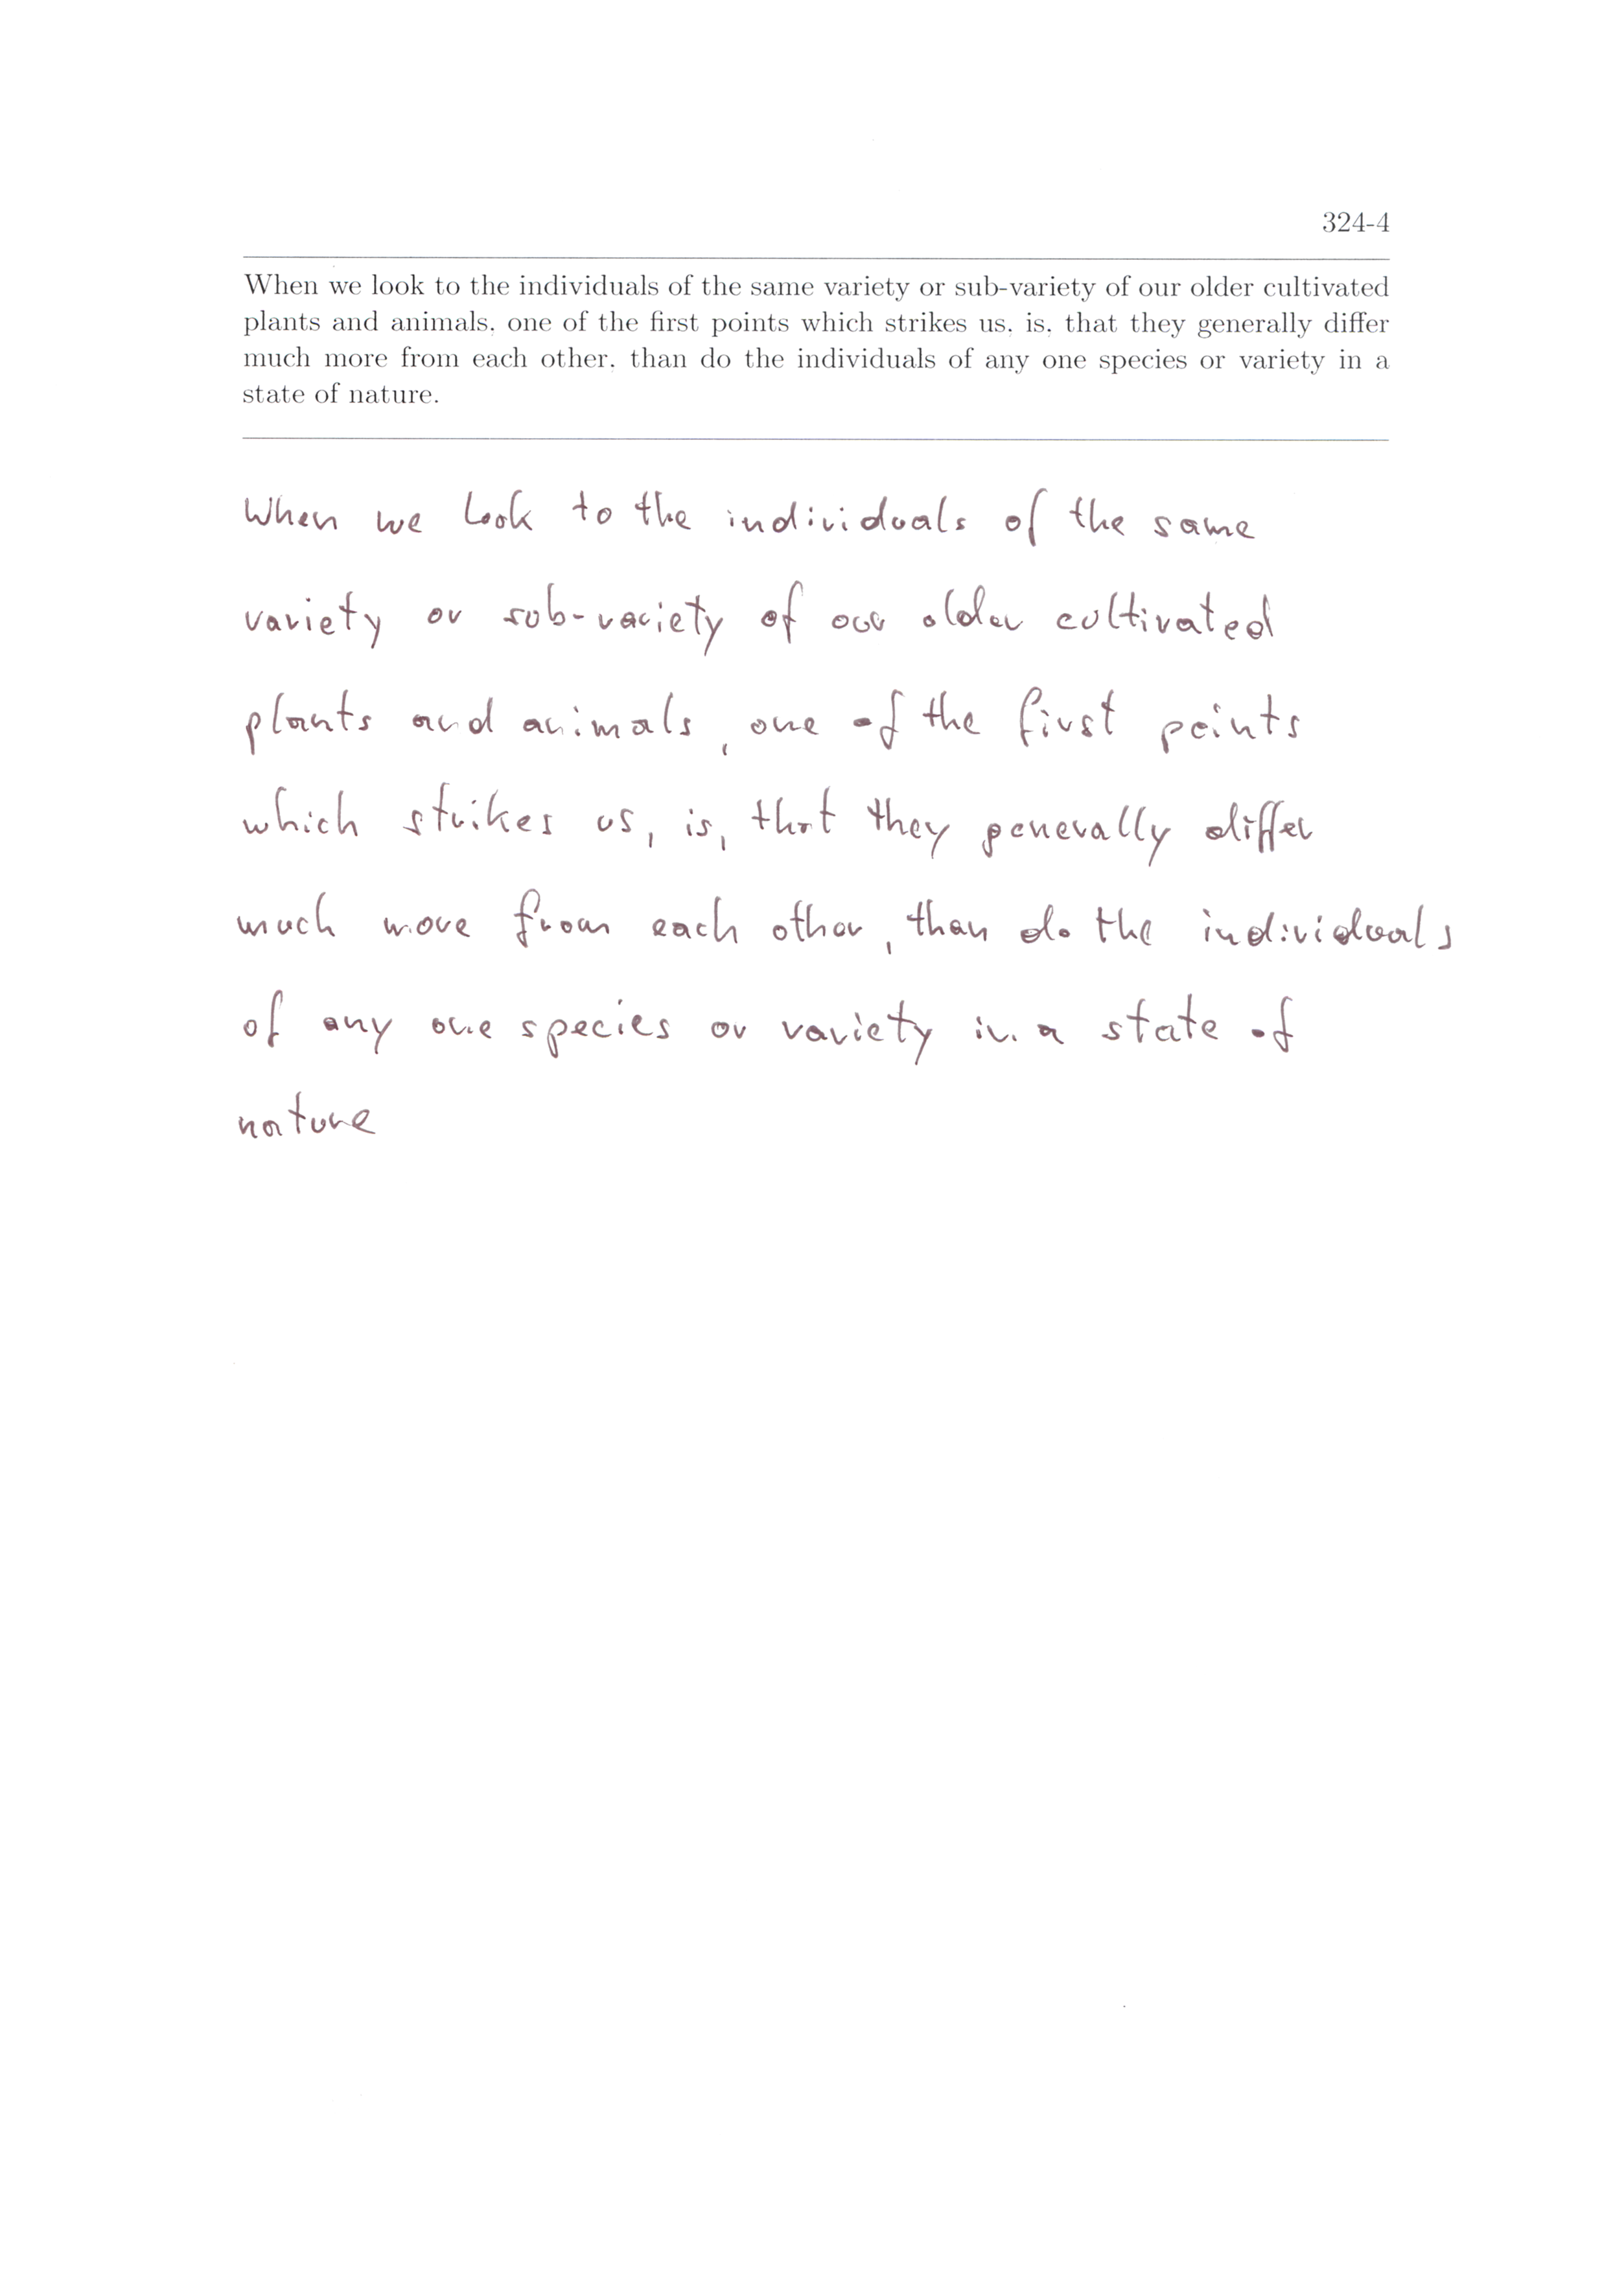 324-4
When we look to the individuals of the same variety or sub-variety of our older cultivated
plants and animals, one of the first points which strikes us, is, that they generally differ
much more from each other, than do the individuals of any one species or variety in a
state of nature.
When we look to the individuals of the same
variety or sub-variety of our older cultivated
plants and animals, one of the first points
which strikes us, is, that they generally differ
much more from each other, than do the individuals
of any one species or variety in a state of
nature